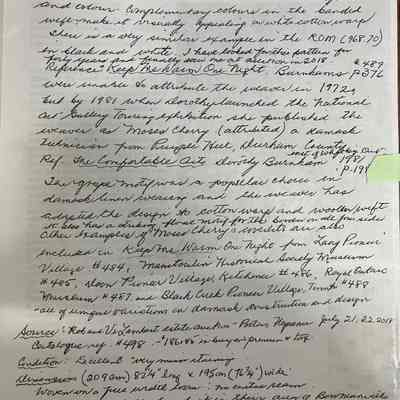 and colour. Complementary colours in the banded
weft make it visually appealing on white cotton warp
There is a very similar example in the ROM (968.70)
in black and white. I have looked for this pattern for
forty years and finally saw one at auction in 2018
Reference Keep Me Warm One Night, Burnhams #489 P 376
were unable to attribute the weaver in 1972,
but by 1981 when Dorothy launched the National
Art Gallery Touring exhibition she published the
weaver as Moses Cherry (attributed) a damask
technician from Durham County
Ref. The Comfortable Arts Dorothy Burnham 1981 P.19
The grape motif was a popular choice in
damask linen weaving and the weaver has
adapted the design to cotton warp and woollen weft
It also has a floral motif for the border on the side
Other examples of Moses Cherry's coverlets are also
included in Keep Me Warm One Night from Lang Pioneer
Village #484, Manitoulin Historical Society Museum
#485, Doon Pioneer Village, Kitchener #486, Royal Ontario
Museum #487 and Black Creek Pioneer Village, Toronto #488
- all of unique variations in damask construction and design
Source: Robert Lambert estate auction - Napanee July 21, 22 2018
Catalogue ref. #498 - buyer premium & tax
Condition: Excellent very minor staining
Dimensions (209cm) 82¼" long x 195cm (76¾") wide
Woven on a full width loom: no centre seam
Bowmanville